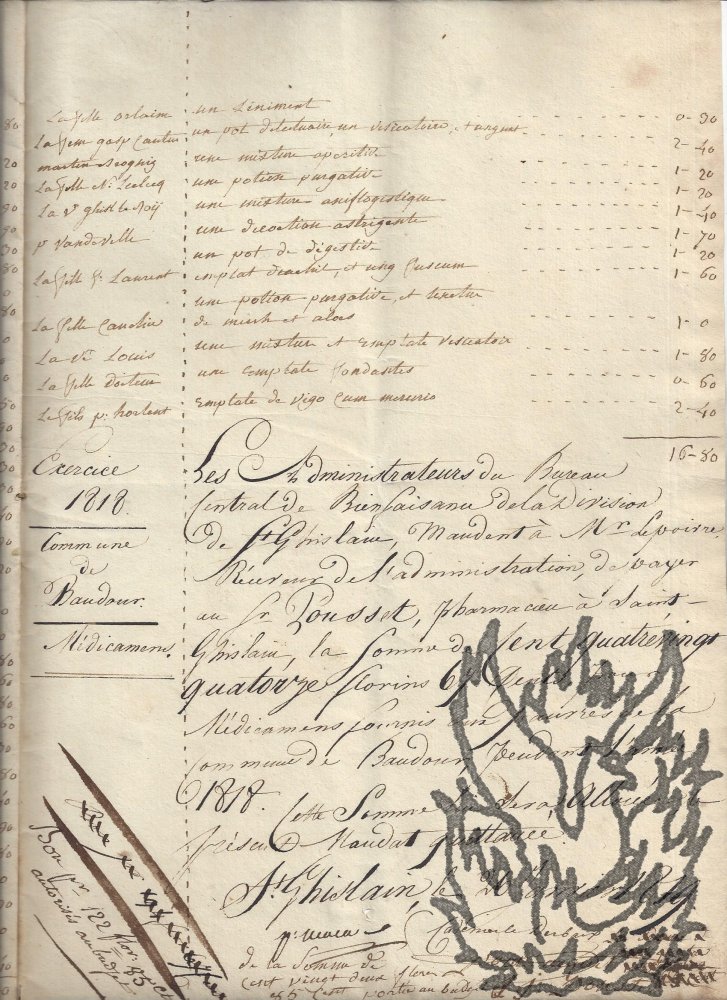 La fille orlaim un Liniment 0-90
La fem gasp Cantin un pot d'electuaire un vesicatoire, et onguent 2-40
martin une mixture aperitive 1-20
La fille Nas Leclecq une potion purgative 1-20
La ve ghisl le Roij une mixture antiflogistique 1-40
p Vandeville une decoction astrigente 1-70
un pot de digestive 1-20
La fille St Laurent emplat diachil, et ung fuscum 1-60
une potion purgative, et teretur
La fille Caudiu de mirrh et aloes 1-0
La ve Louis une mixture et Emplatre vesicatoir 1-80
La fille docteur une Emplatre fondantes 0-60
Le fils p. horlent Emplatre de vigo Cum mercurio 2-40
16-80
Exercice
1818.
Commune
de
Baudour.
Médicamens.
Les Administrateurs du Bureau
Central de Bienfaisance de la Division
de St Ghislain, Mandent à Mr Lepoivre,
Réceveur de l'administration, de payer
au Sr Pousset, Pharmacien à Saint-
Ghislain, la Somme de Cent quatrevingt
quatorze florins 69 Cents pour
Médicamens fournis aux pauvres de la
Commune de Baudour, pendant l'année
1818.
Cette Somme lui sera Allouée le
présent Mandat quittancé.
St Ghislain, le
de la Somme de
Cent vingt deux florins
85 Cent porté au budget
Bon pr. 122 flor. 85 ct
autorisés au budget